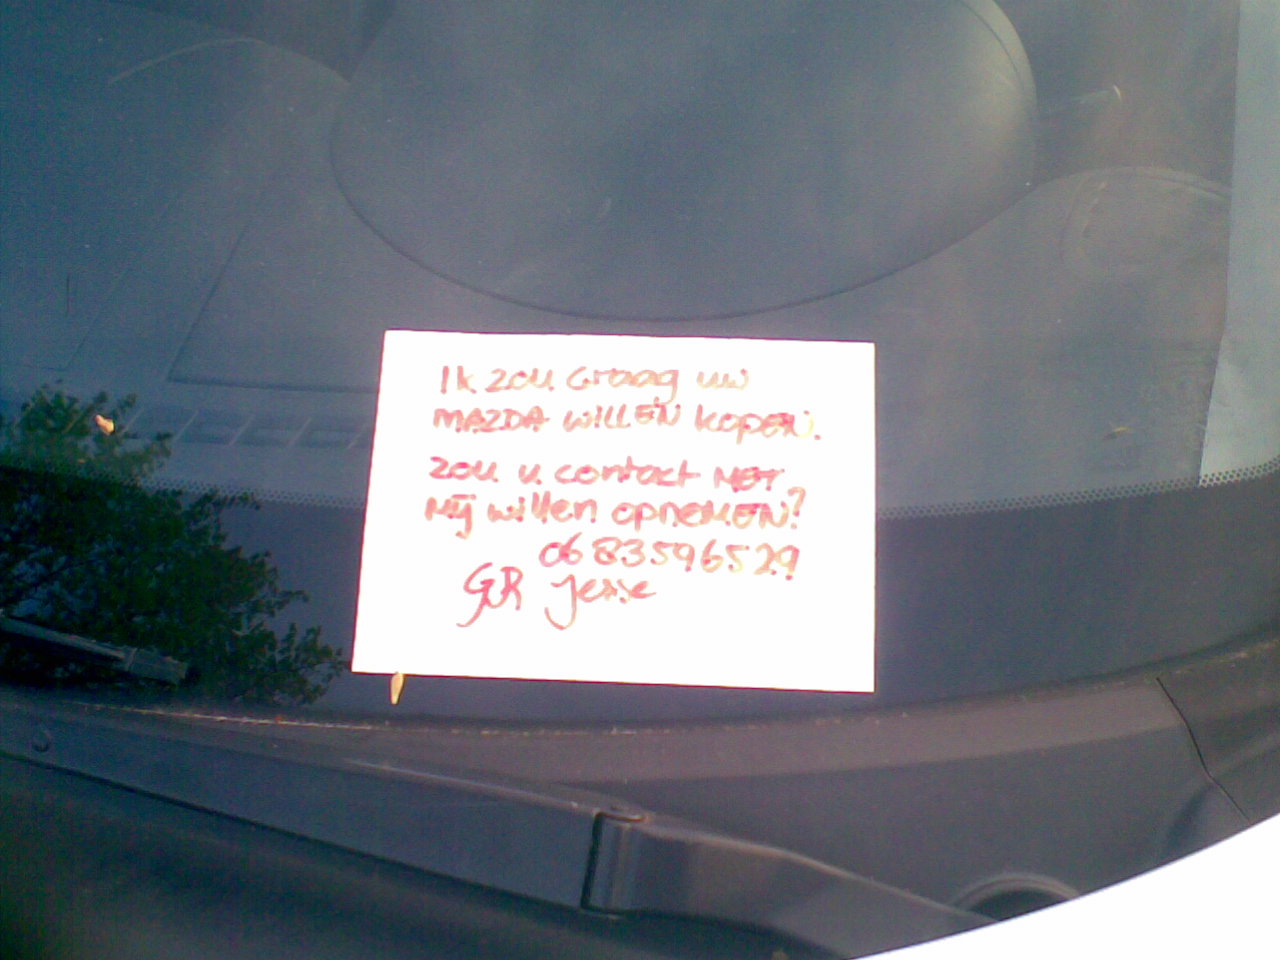 Ik zou graag uw
MAZDA WILLEN KOPEN.
zou u contact MET
Mij willen opnemen?
06 83596529
GR Jessie